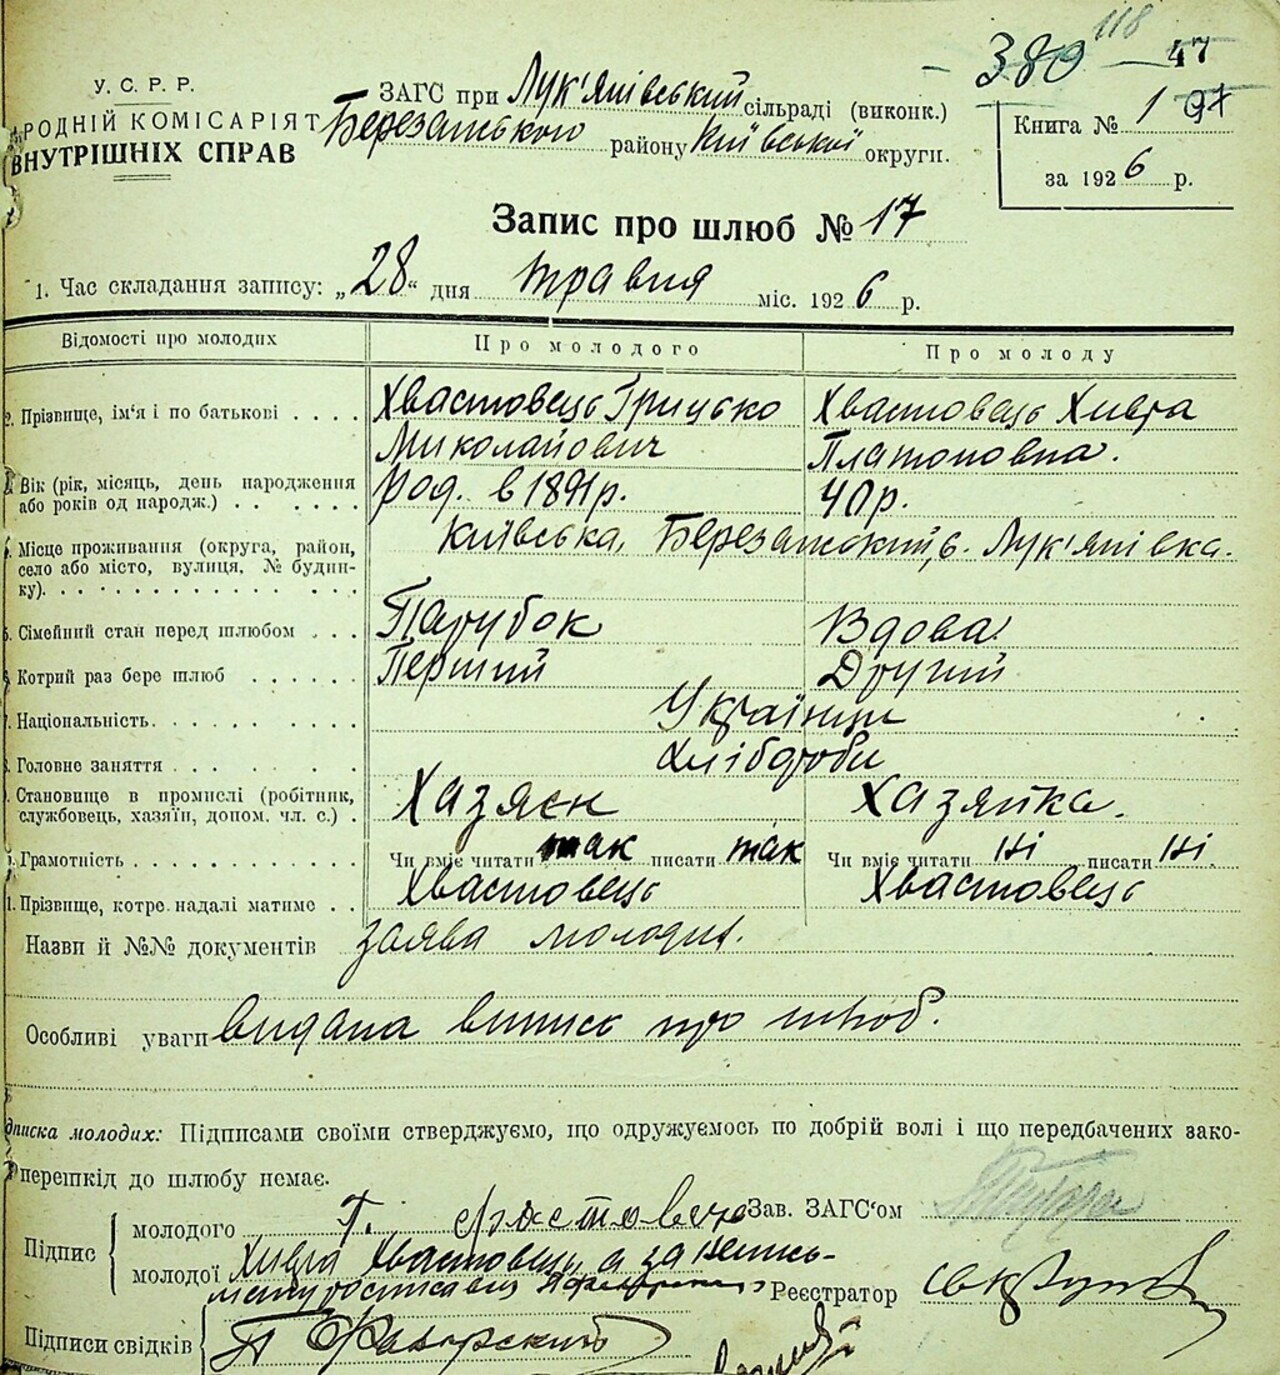 118
— 380 — 47
У. С. Р. Р.
РОДНІЙ КОМІСАРІЯТ
ВНУТРІШНІХ СПРАВ
ЗАГС при Лук'янівський сільраді (виконк.)
Березанського району Київської округи.
Книга № 1 97
за 1926 р.
Запис про шлюб № 17
1. Час складання запису: „28“ дня травня міс. 1926 р.
Відомості про молодих Про молодого Про молоду
2. Прізвище, ім'я і по батькові . . . . Хвастовець Грицько Хвастовець Хивра
Миколайович Платоновна.
Вік (рік, місяць, день народження Род. в 1891 р. 40 р.
або років од народж.) . . . . . .
Київська, Березанський, с. Лук'янівка.
Місце проживання (округа, район,
село або місто, вулиця, № будин-
ку). . . . . . . . . . . . . .
Сімейний стан перед шлюбом . . . Парубок Вдова.
Котрий раз бере шлюб . . . . . . Перший Другий
Національність. . . . . . . . . Українци
Головне заняття . . . . . . . . Хлібороби
Становище в промислі (робітник, Хазяєн Хазяйка.
службовець, хазяїн, допом. чл. с.) .
Грамотність . . . . . . . . . . . Чи вміє читати так писати так Чи вміє читати ні писати ні.
1. Прізвище, котре надалі матиме . . Хвастовець Хвастовець
Назви й №№ документів заява молодих.
Особливі уваги видана виписъ про шлюб.
дписка молодих: Підписами своїми стверджуємо, що одружуємось по добрій волі і що передбачених зако-
перешкід до шлюбу немає.
Підпис { молодого Г. Хвастовець Зав. ЗАГС'ом
молодої Хивра Хвастовець, а за непись-
Реєстратор
Підписи свідків {